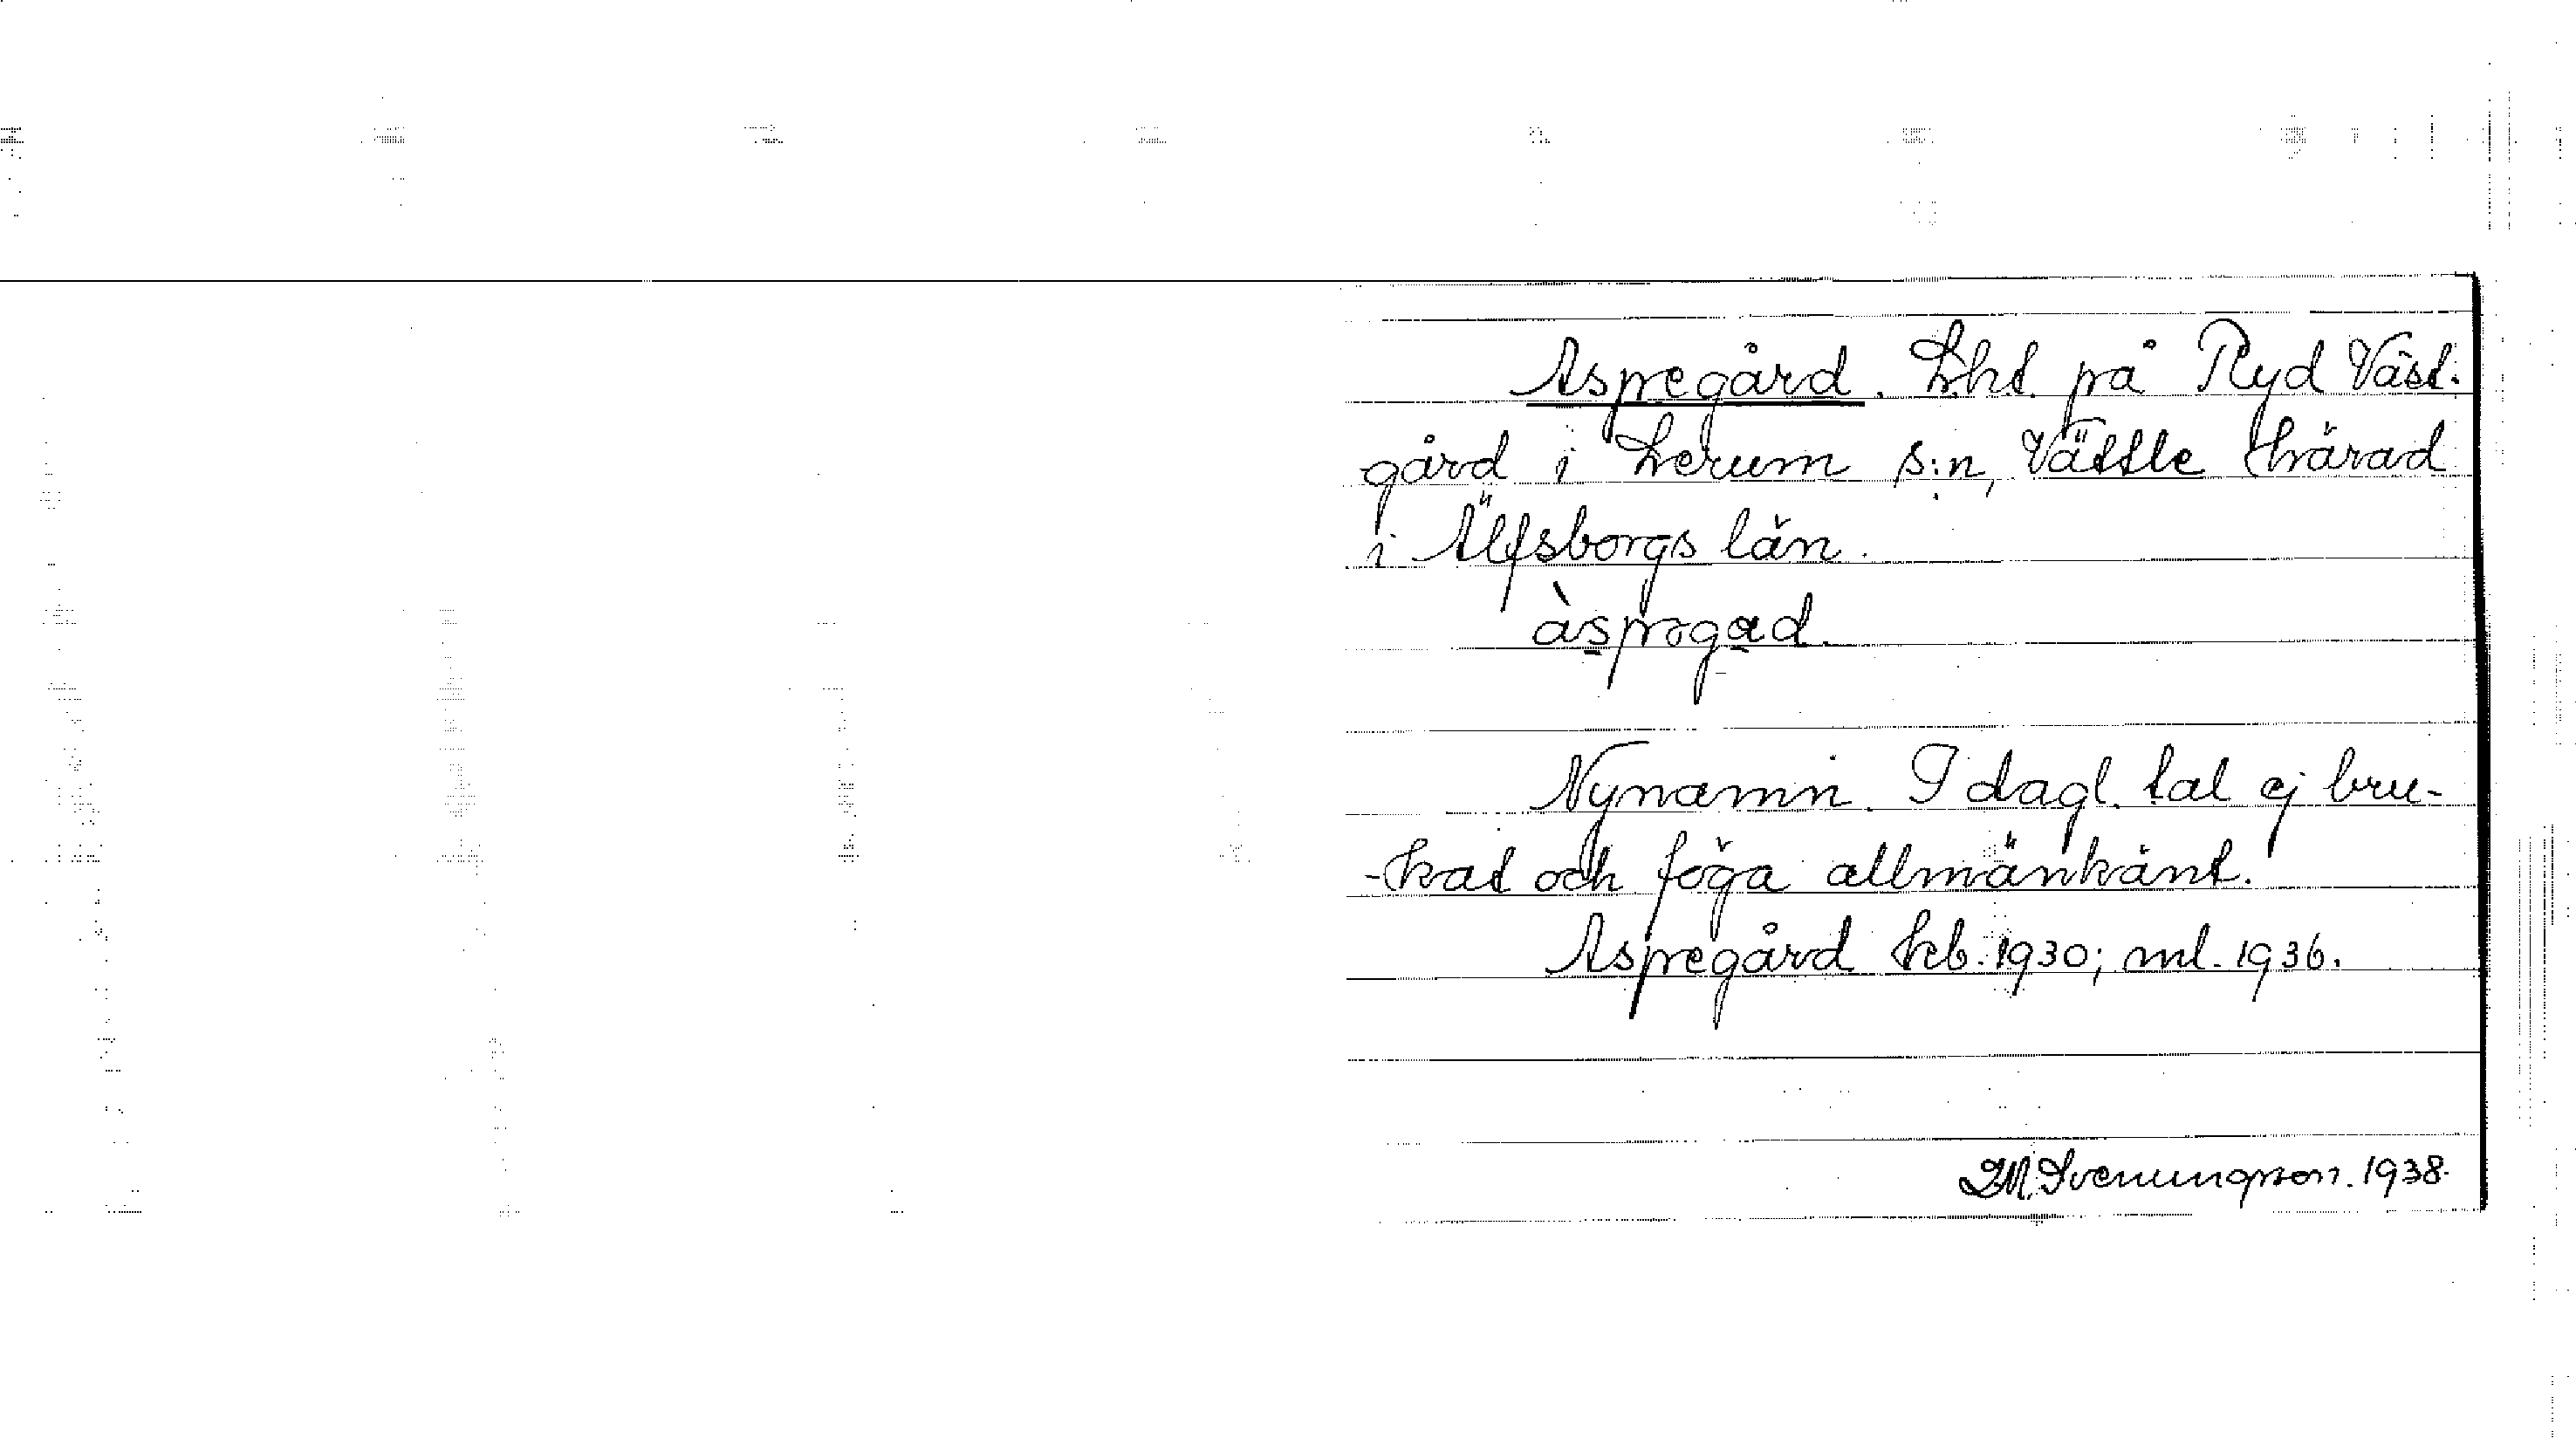 Aspegård. Lht. på Ryd Väst.
gård i Lerum s:n, Vättle härad
i Älfsborgs län.
àspəgad.
Nynamn. I dagl. tal ej bru-
-kat och föga allmänkänt.
Aspegård kb. 1930; ml. 1936.
Svenungsson. 1938.